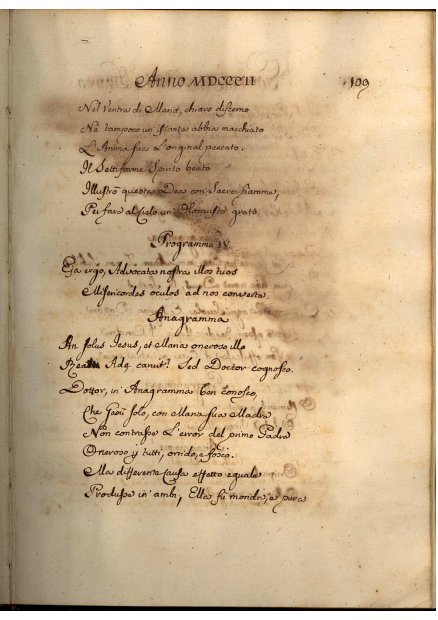 Anno MDCCCII
109
Nel Ventre di Maria, chiaro discerno
Nè tampoco un' istante abbia macchiato
L'Anima sua L'original peccato.
Il Settiforme Spirito beato
Illustrò questa Dea con Sacre fiamme,
Per fare al Cielo un Olocausto grato.
Programma IV
Eja ergo, Advocata nostra illos tuos
Misericordes oculos ad nos converte.
Anagramma
An solus Jesus, et Maria oneroso illo
Adę caruit? Sed Doctor cognosco.
Dottor, in' Anagramma ben conosco,
Che Gesù solo, con Maria sua Madre
Non contrasse L'error del primo Padre
Oneroso p tutti, orrido, e fosco.
Ma differente Causa effetto eguale
Produsse in' ambi, Ella fù monda, e pura